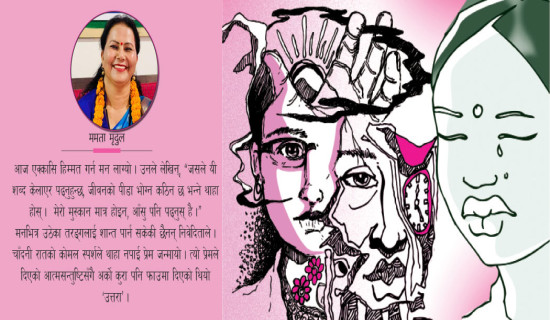 ममता मृदुल
आज एक्कासि हिम्मत गर्न मन लाग्यो । उनले लेखिन्, “जसले यी
शब्द केलाएर पढ्नुहुन्छ, जीवनको पीडा भोग्न कठिन छ भन्ने थाहा
होस् । मेरो मुस्कान मात्र होइन, आँसु पनि पढ्नुस् है ।”
मनभित्र उठेका तरङ्गलाई शान्त पार्न सकेकी छैनन् निवेदिताले ।
चाँदनी रातको कोमल स्पर्शले थाहा नपाई प्रेम जन्मायो । त्यो प्रेमले
दिएको आत्मसन्तुष्टिसँगै अर्को कुरा पनि फाउमा दिएको थियो
‘उत्तरा’ ।